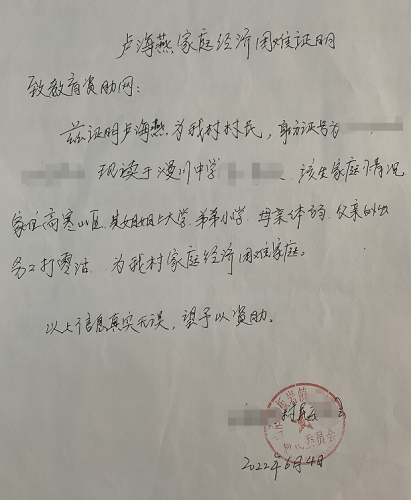 卢海燕家庭经济困难证明
致教育资助网:
兹证明卢海燕为我村村民,身份证号为
现读于漫川中学 该生家庭情况
家住高寒山区,其姐姐上大学,弟弟小学,母亲体弱,父亲外出
务工打零活,为我村家庭经济困难家庭。
以上信息真实无误,望予以资助。
村 委会
委员会
2022年6月4日